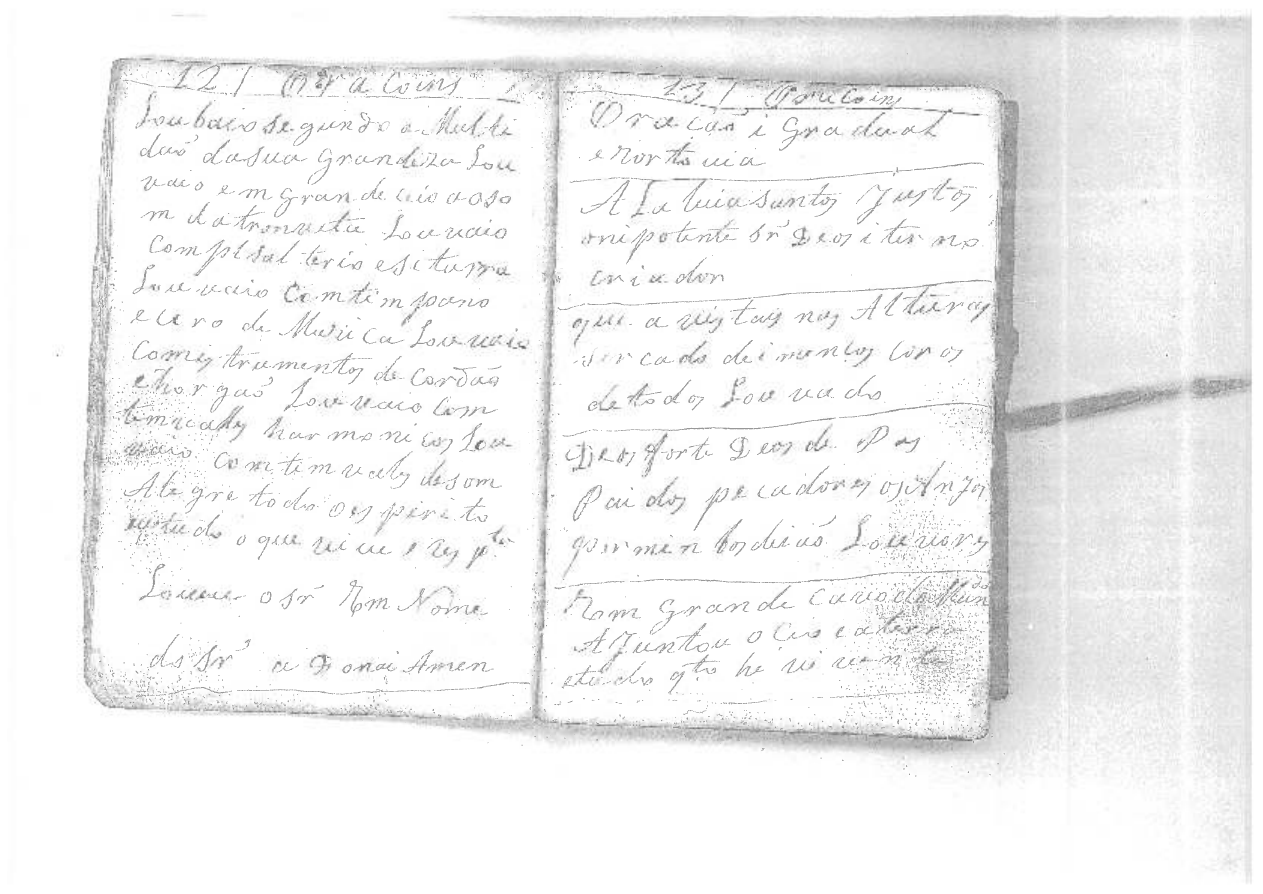 12 / Oracoins
Loubaio segundo a Multi
daõ dasua Grandeza Lou
vaio em grandecaio aoso
m datronveta Louvaio
Comp salterio esitarra
Louvaio Com timpano
ecoro de Muzica Louvaio
Comestrumentos de Cordas
ehorgaõ Louvaio Com
harmonicos Lou
vaio com desom
Alegre todo oespirito
etudo o que vive
Louve o Sr Em Nome
do Sr a Donai Amen
13 / Oracoins
Oracaõ i Gradual
A La luia santos Justos
onipotente Sr Deos iterno
criador
que avistais nas Alturas
sercado deimencos Coros
detodos Louvado
Deos forte Deos de Pas
Pai dos pecadores os Anjos
Louvores
Em Grande
A Juntou o Ceo eaterra
etudo qto he vivente